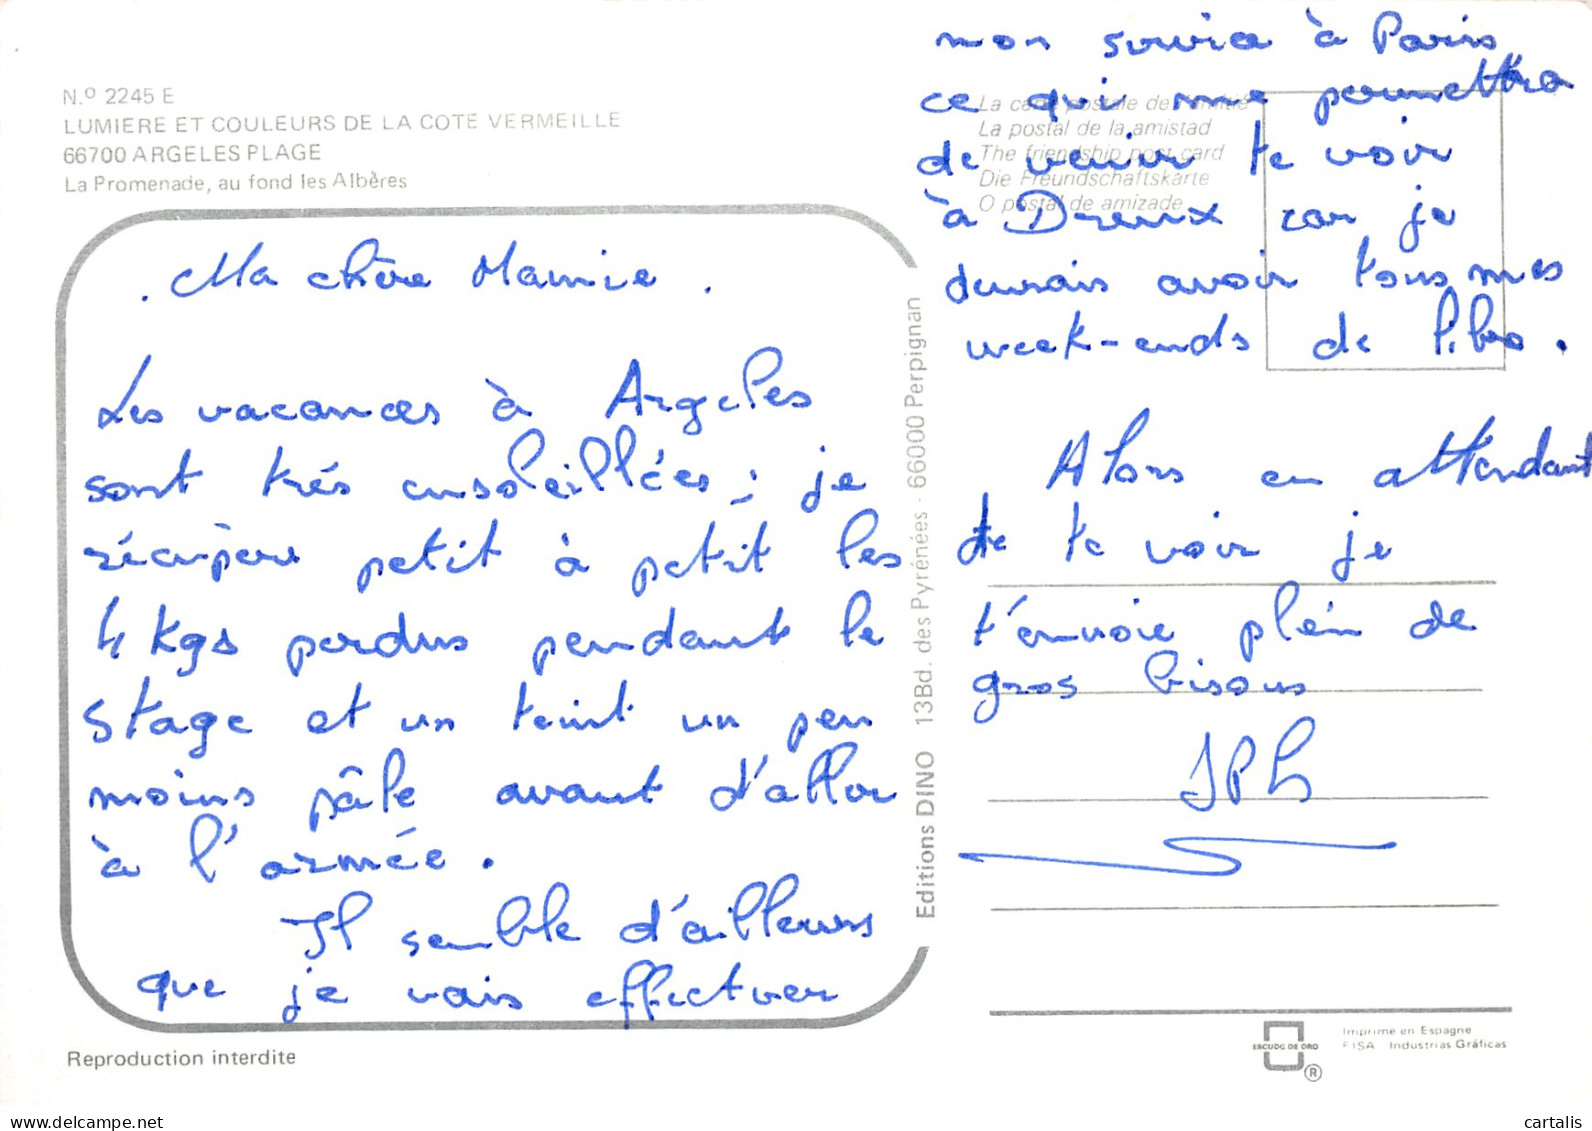 N.º 2245 E
LUMIERE ET COULEURS DE LA COTE VERMEILLE
66700 ARGELES PLAGE
La Promenade, au fond les Albères
. Ma chère Mamie .
Les vacances à Argeles
sont très ensoleillées ; je
récupère petit à petit les
4 Kgs perdus pendant le
stage et un teint un peu
moins pâle avant d'aller
à l'armée .
Il semble d'ailleurs
que je vais effectuer
Reproduction interdite
Editions DINO 13Bd. des Pyrénées - 66000 Perpignan
La carte postale de l'amitié
La postal de la amistad
The friendship post card
Die Freundschaftskarte
O postal de amizade
mon service à Paris
ce qui me permettra
de venir te voir
à Dreux car je
devrais avoir tous mes
week-ends de libre .
Alors en attendant
de te voir je
t'envoie plein de
gros bisous
JPh
ESCUDO DE ORO
®
Imprime en Espagne
FISA Industrias Gráficas
www.delcampe.net
cartalis